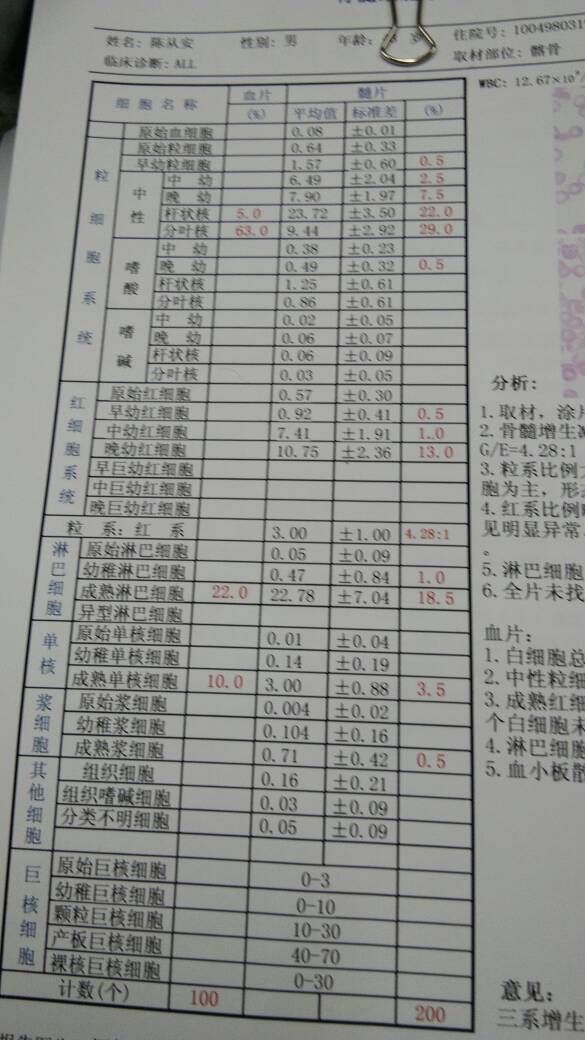 姓名: 陈从安 性别: 男 年龄: 岁 住院号: 1004980319
临床诊断: ALL 取材部位: 髂骨
WBC: 12.67×10
细胞名称 血片 髓片
(%) 平均值 标准差 (%)
粒细胞系统
原始血细胞 0.08 ±0.01
原始粒细胞 0.64 ±0.33
早幼粒细胞 1.57 ±0.60 0.5
中性
中 幼 6.49 ±2.04 2.5
晚 幼 7.90 ±1.97 7.5
杆状核 5.0 23.72 ±3.50 22.0
分叶核 63.0 9.44 ±2.92 29.0
嗜酸
中 幼 0.38 ±0.23
晚 幼 0.49 ±0.32 0.5
杆状核 1.25 ±0.61
分叶核 0.86 ±0.61
嗜碱
中 幼 0.02 ±0.05
晚 幼 0.06 ±0.07
杆状核 0.06 ±0.09
分叶核 0.03 ±0.05
红细胞系统
原始红细胞 0.57 ±0.30
早幼红细胞 0.92 ±0.41 0.5
中幼红细胞 7.41 ±1.91 1.0
晚幼红细胞 10.75 ±2.36 13.0
早巨幼红细胞
中巨幼红细胞
晚巨幼红细胞
粒 系: 红 系 3.00 ±1.00 4.28:1
淋巴细胞
原始淋巴细胞 0.05 ±0.09
幼稚淋巴细胞 0.47 ±0.84 1.0
成熟淋巴细胞 22.0 22.78 ±7.04 18.5
异型淋巴细胞
单核
原始单核细胞 0.01 ±0.04
幼稚单核细胞 0.14 ±0.19
成熟单核细胞 10.0 3.00 ±0.88 3.5
浆细胞
原始浆细胞 0.004 ±0.02
幼稚浆细胞 0.104 ±0.16
成熟浆细胞 0.71 ±0.42 0.5
其他细胞
组织细胞 0.16 ±0.21
组织嗜碱细胞 0.03 ±0.09
分类不明细胞 0.05 ±0.09
巨核细胞
原始巨核细胞 0-3
幼稚巨核细胞 0-10
颗粒巨核细胞 10-30
产板巨核细胞 40-70
裸核巨核细胞 0-30
计数(个) 100 200
分析:
1.取材，涂片
2.骨髓增生
G/E=4.28:1
3.粒系比例
胞为主，形
4.红系比例
见明显异常
。
5.淋巴细胞
6.全片未找
血片:
1.白细胞总
2.中性粒细
3.成熟红细
个白细胞未
4.淋巴细胞
5.血小板散
意见:
三系增生